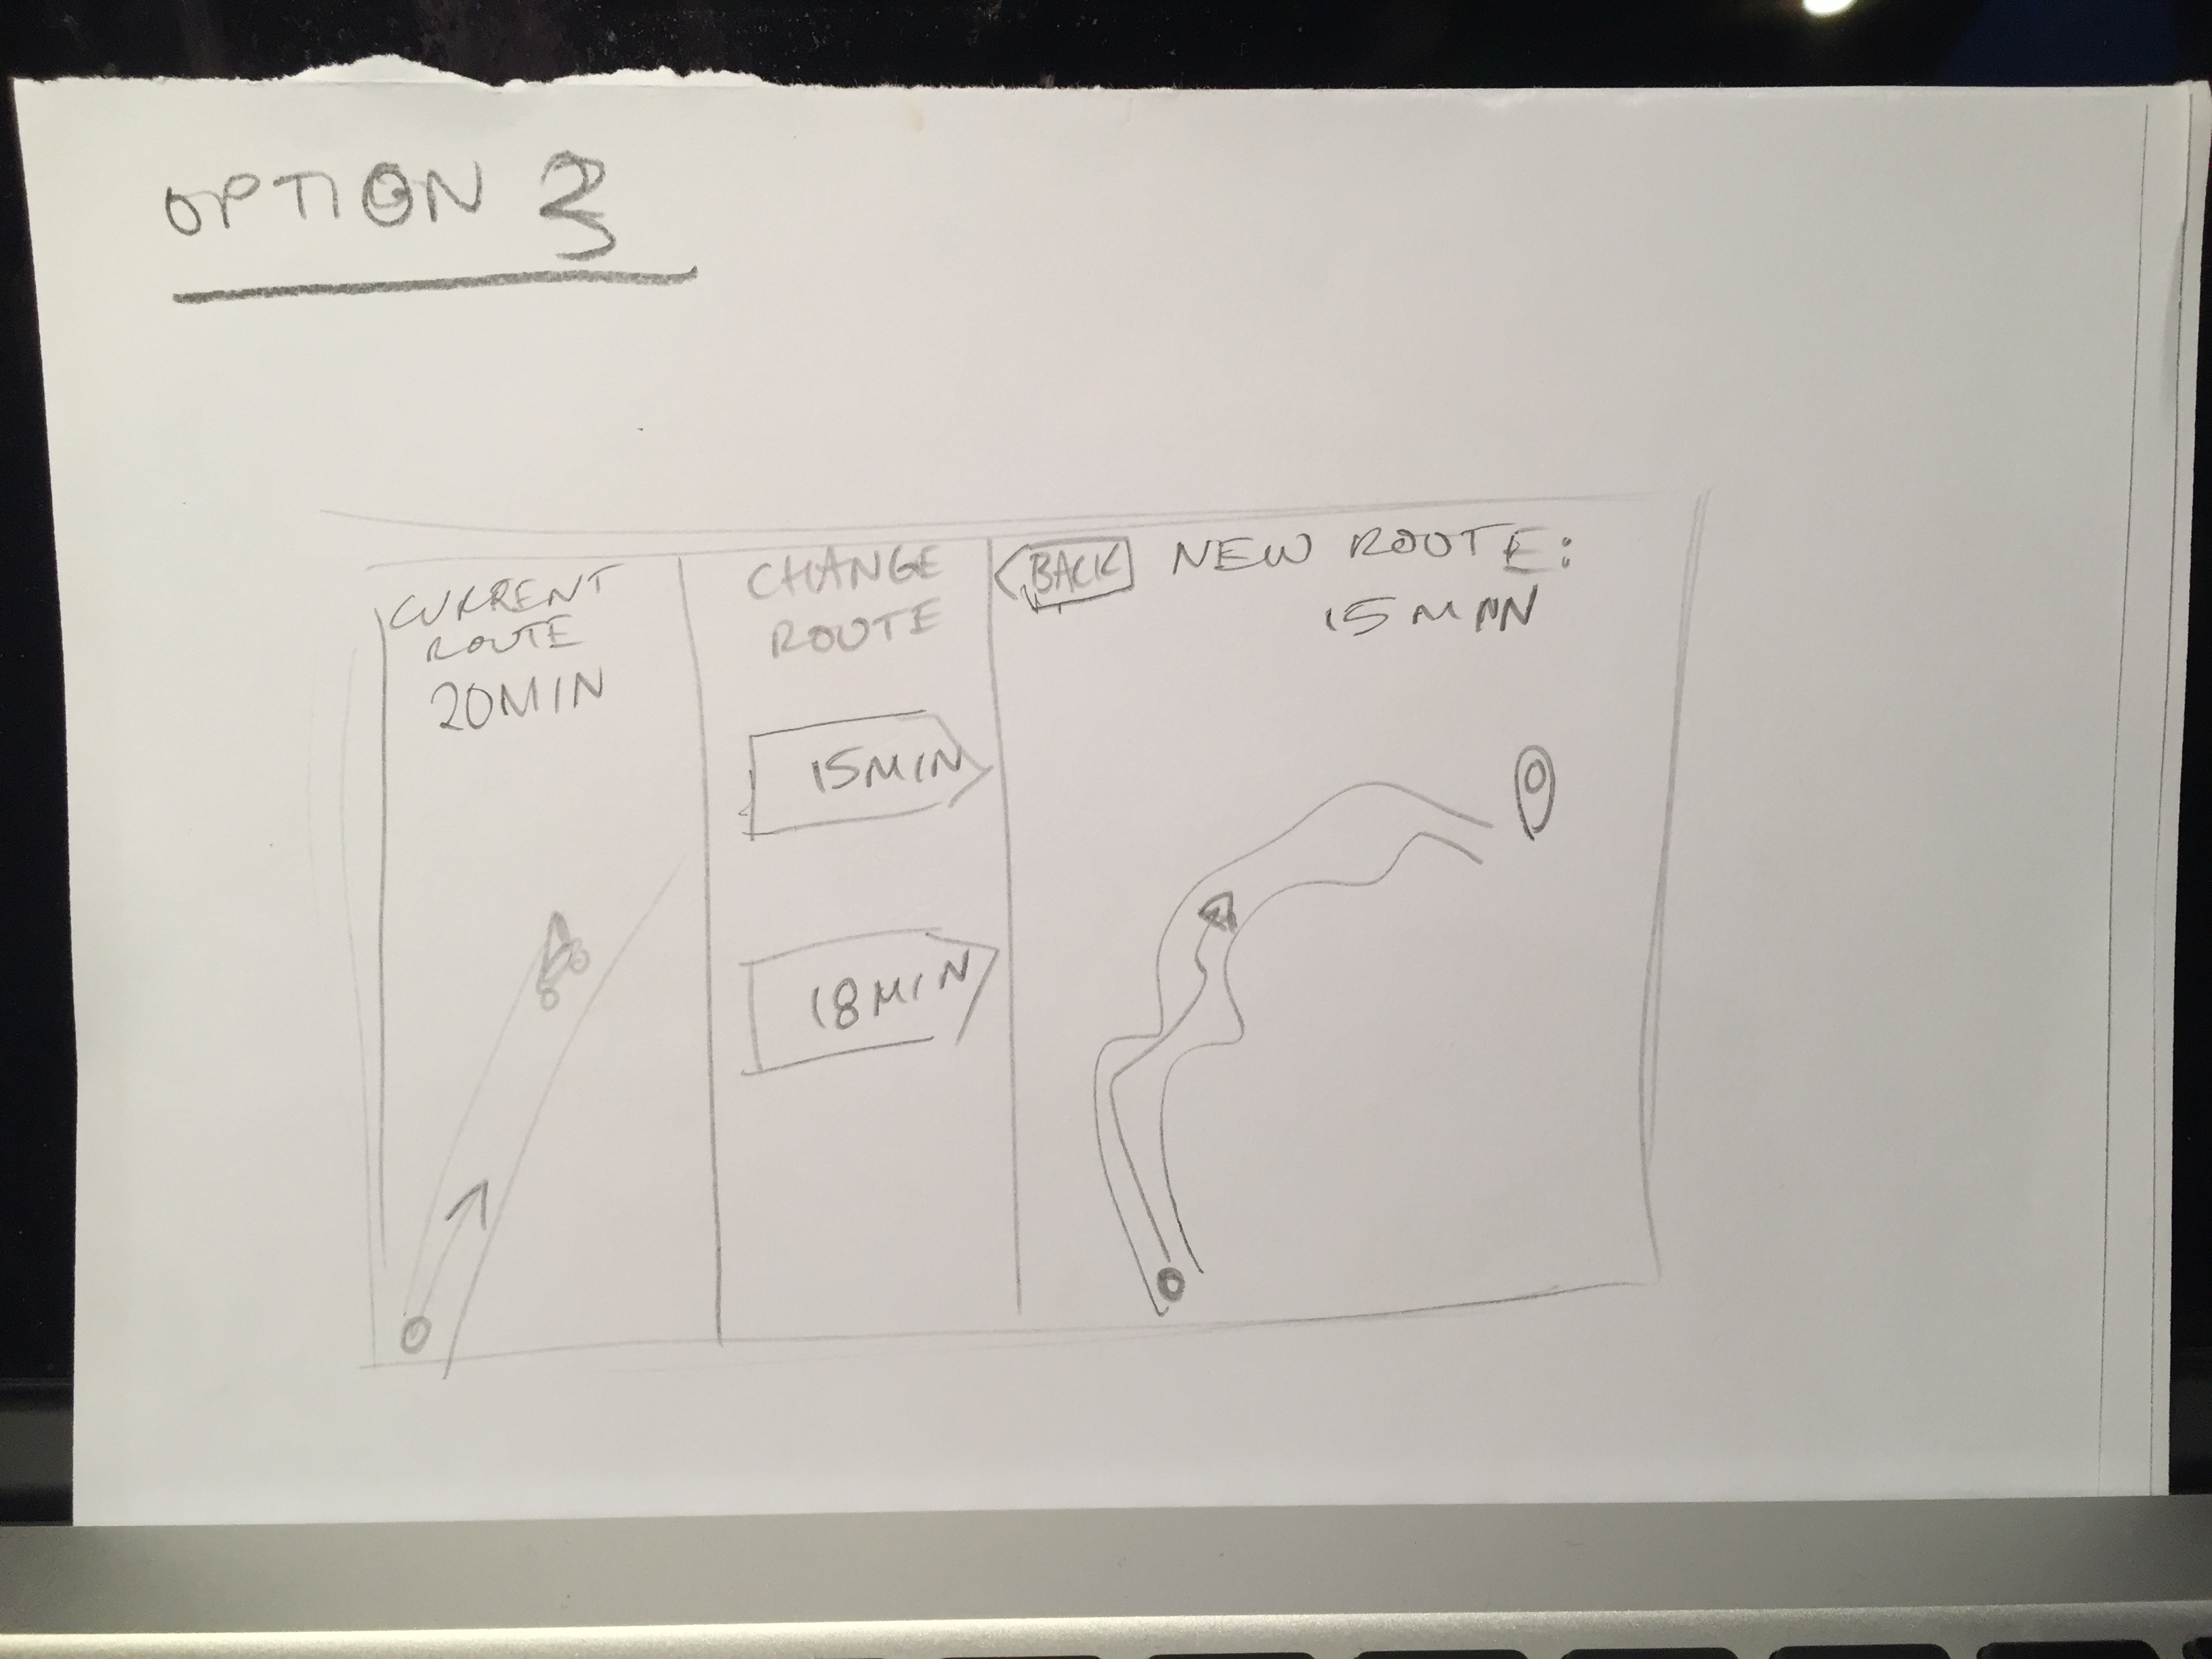 OPTION 3
CURRENT
ROUTE
20MIN
CHANGE
ROUTE
15MIN
18MIN
BACK
NEW ROUTE:
15 MIN